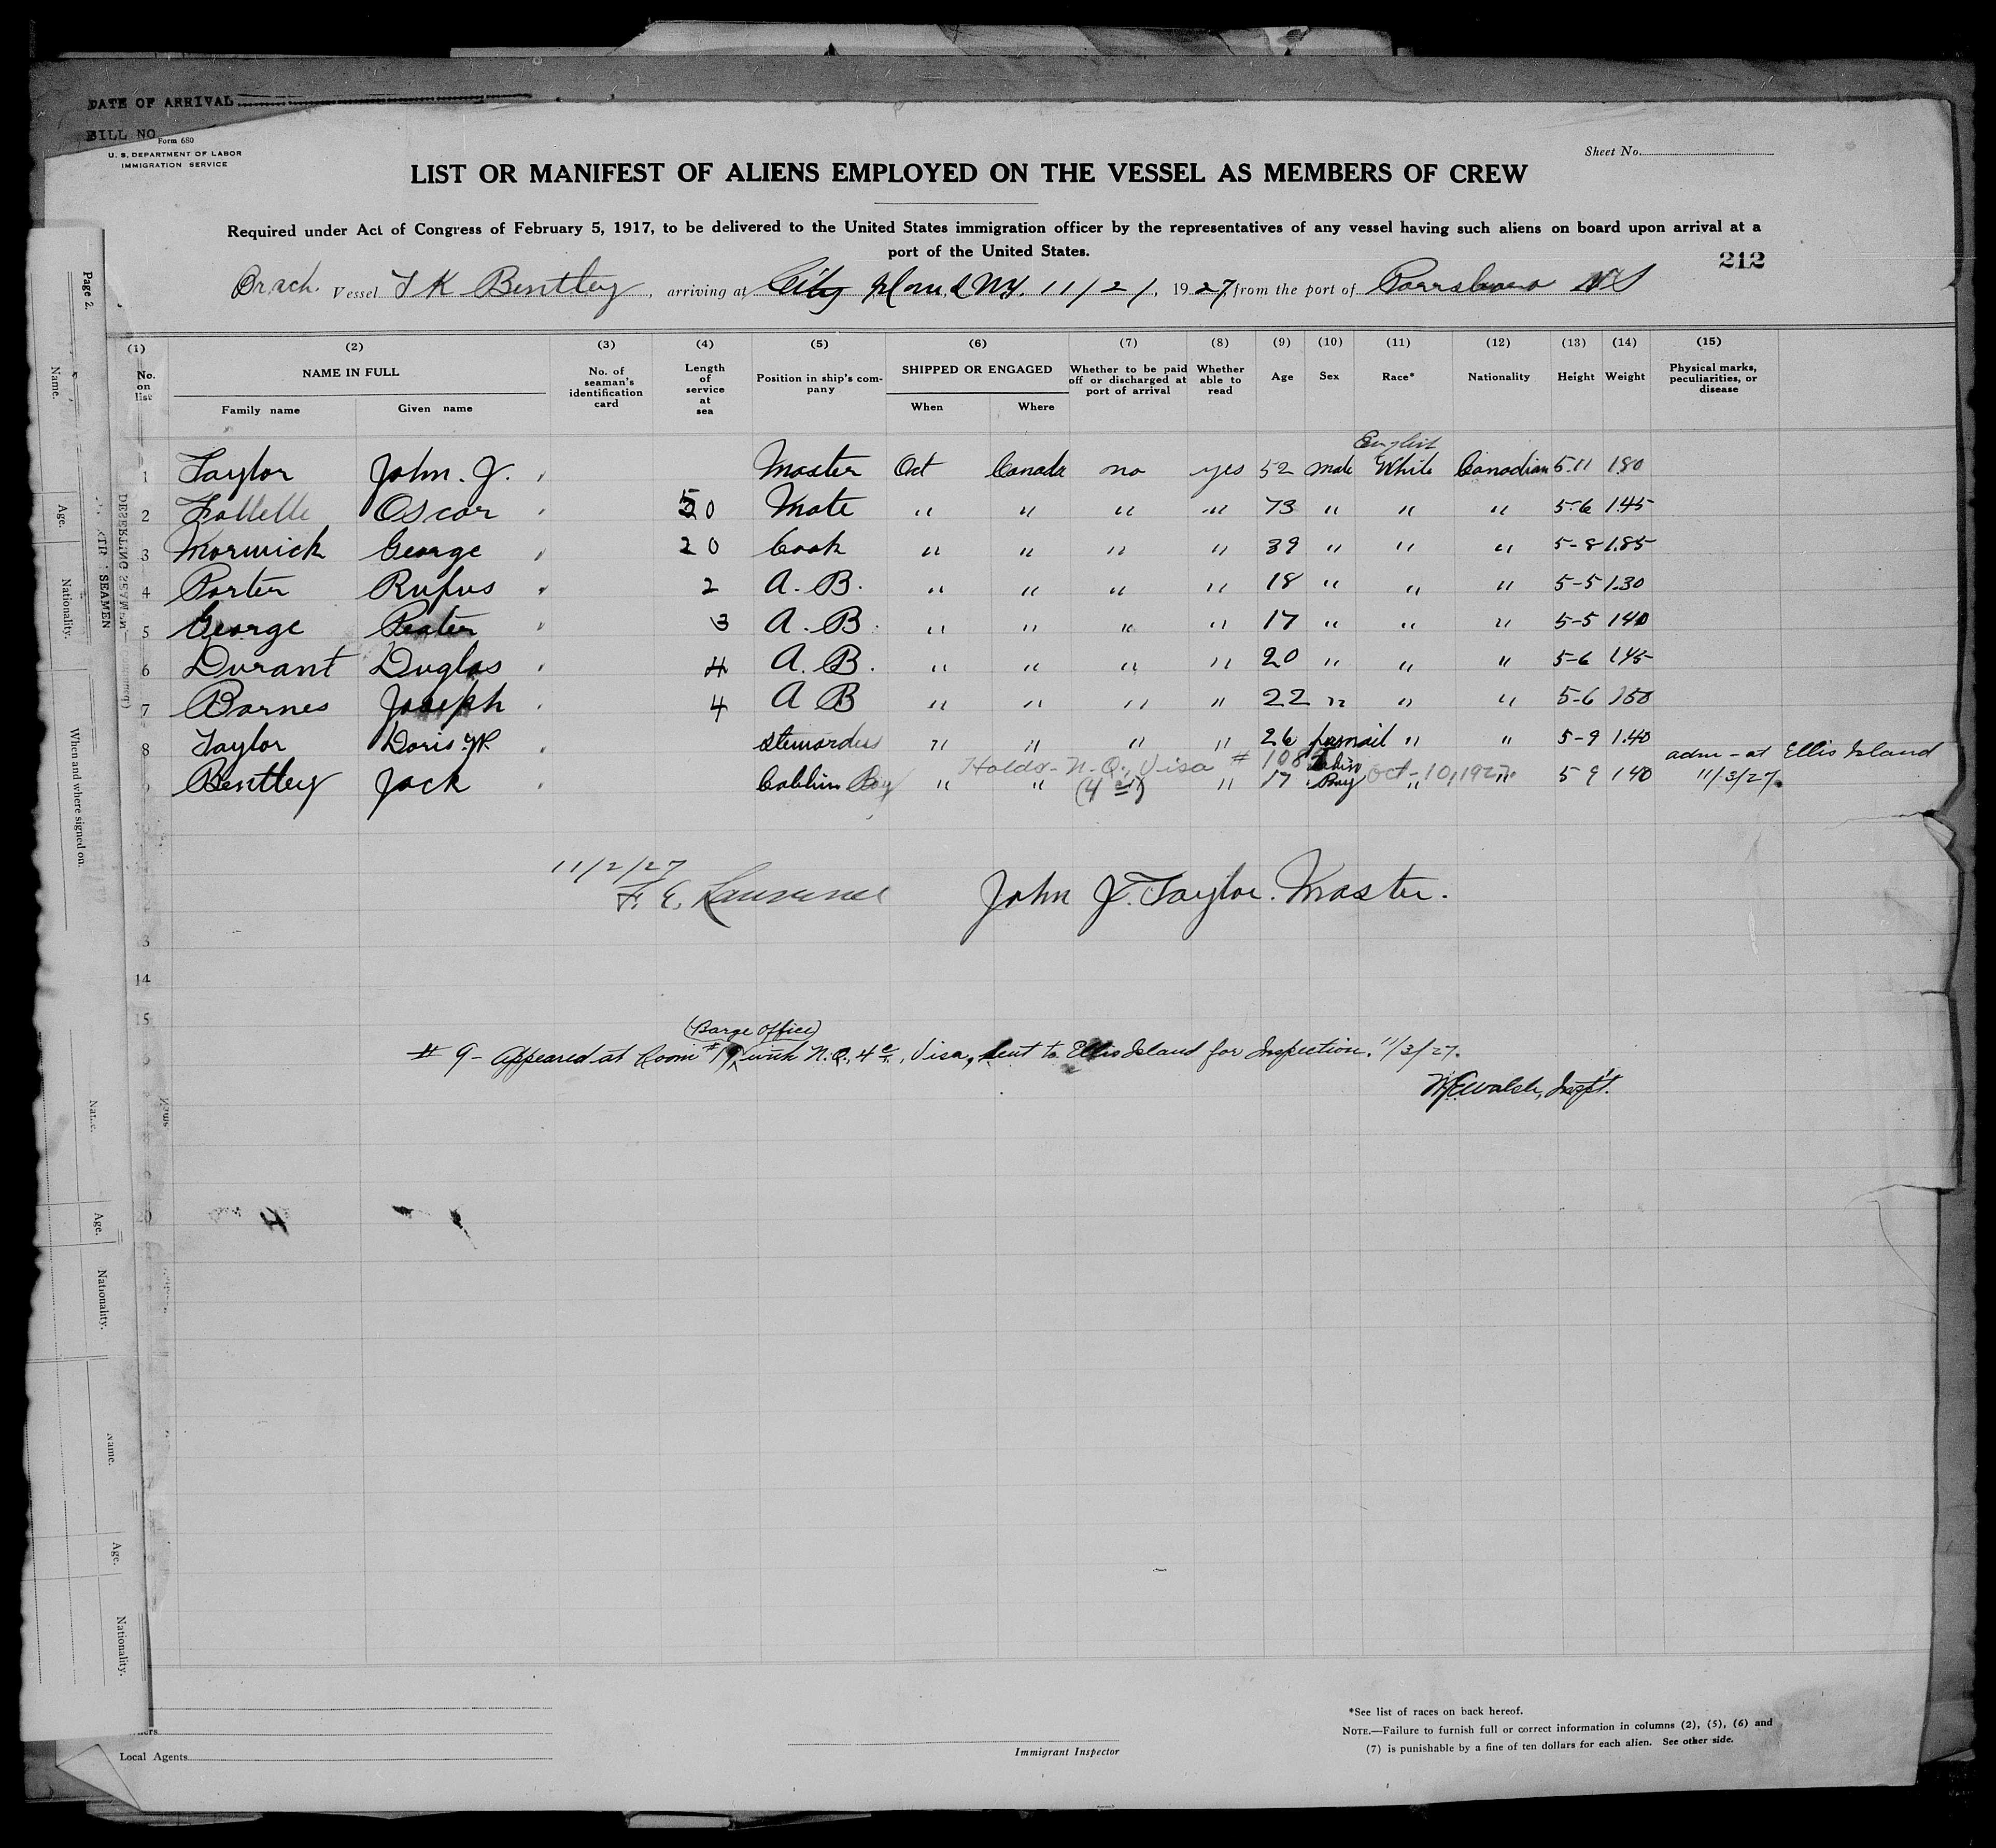 DATE OF ARRIVAL
BILL NO.
Form 680
U. S. DEPARTMENT OF LABOR
IMMIGRATION SERVICE
Sheet No.
LIST OR MANIFEST OF ALIENS EMPLOYED ON THE VESSEL AS MEMBERS OF CREW
Required under Act of Congress of February 5, 1917, to be delivered to the United States immigration officer by the representatives of any vessel having such aliens on board upon arrival at a
port of the United States.
212
Vessel T K Bentley, arriving at City Island NY. 11/2/, 1927, from the port of Parrsboro NS
(1) (2) (3) (4) (5) (6) (7) (8) (9) (10) (11) (12) (13) (14) (15)
No. on list NAME IN FULL No. of seaman's identification card Length of service at sea Position in ship's company SHIPPED OR ENGAGED Whether to be paid off or discharged at port of arrival Whether able to read Age Sex Race* Nationality Height Weight Physical marks, peculiarities, or disease
Family name Given name When Where
English
1 Taylor John. J. Master Oct Canada no yes 52 male White Canadian 5-11 180
2 Oscar 50 Mate " " " " 73 " " " 5-6 145
3 Morwick George 20 Cook " " " " 39 " " " 5-8 185
4 Porter Rufus 2 A. B. " " " " 18 " " " 5-5 130
5 George Peater 3 A. B. " " " " 17 " " " 5-5 140
6 Durant Duglas 4 A. B. " " " " 20 " " " 5-6 145
7 Barnes Joseph 4 A B " " " " 22 " " " 5-6 150
8 Taylor Doris M. Stewardess " " " " 26 femail " " 5-9 140
Holds - N.Q. Visa # 108 Oct-10, 1927. adm - at Ellis Island
Bentley Jack Cabhin Boy " " (4 c) " 17 Boy " " 5 9 140 11/3/27.
11/2/27
F. E. Lawrence
John J. Taylor. Master.
3
14
15
(Barge Office)
# 9 - Appeared at Room # with N.Q. 4 c, Visa, sent to Ellis Island for Inspection. 11/3/27.
Walsh, Insp't.
20
Page 2.
Name.
Age.
Nationality.
When and where signed on.
DESERTING SEAMEN
SEAMEN
Age.
Nationality.
Name.
Age.
Nationality.
Local Agents
Immigrant Inspector
*See list of races on back hereof.
NOTE.—Failure to furnish full or correct information in columns (2), (5), (6) and
(7) is punishable by a fine of ten dollars for each alien. See other side.